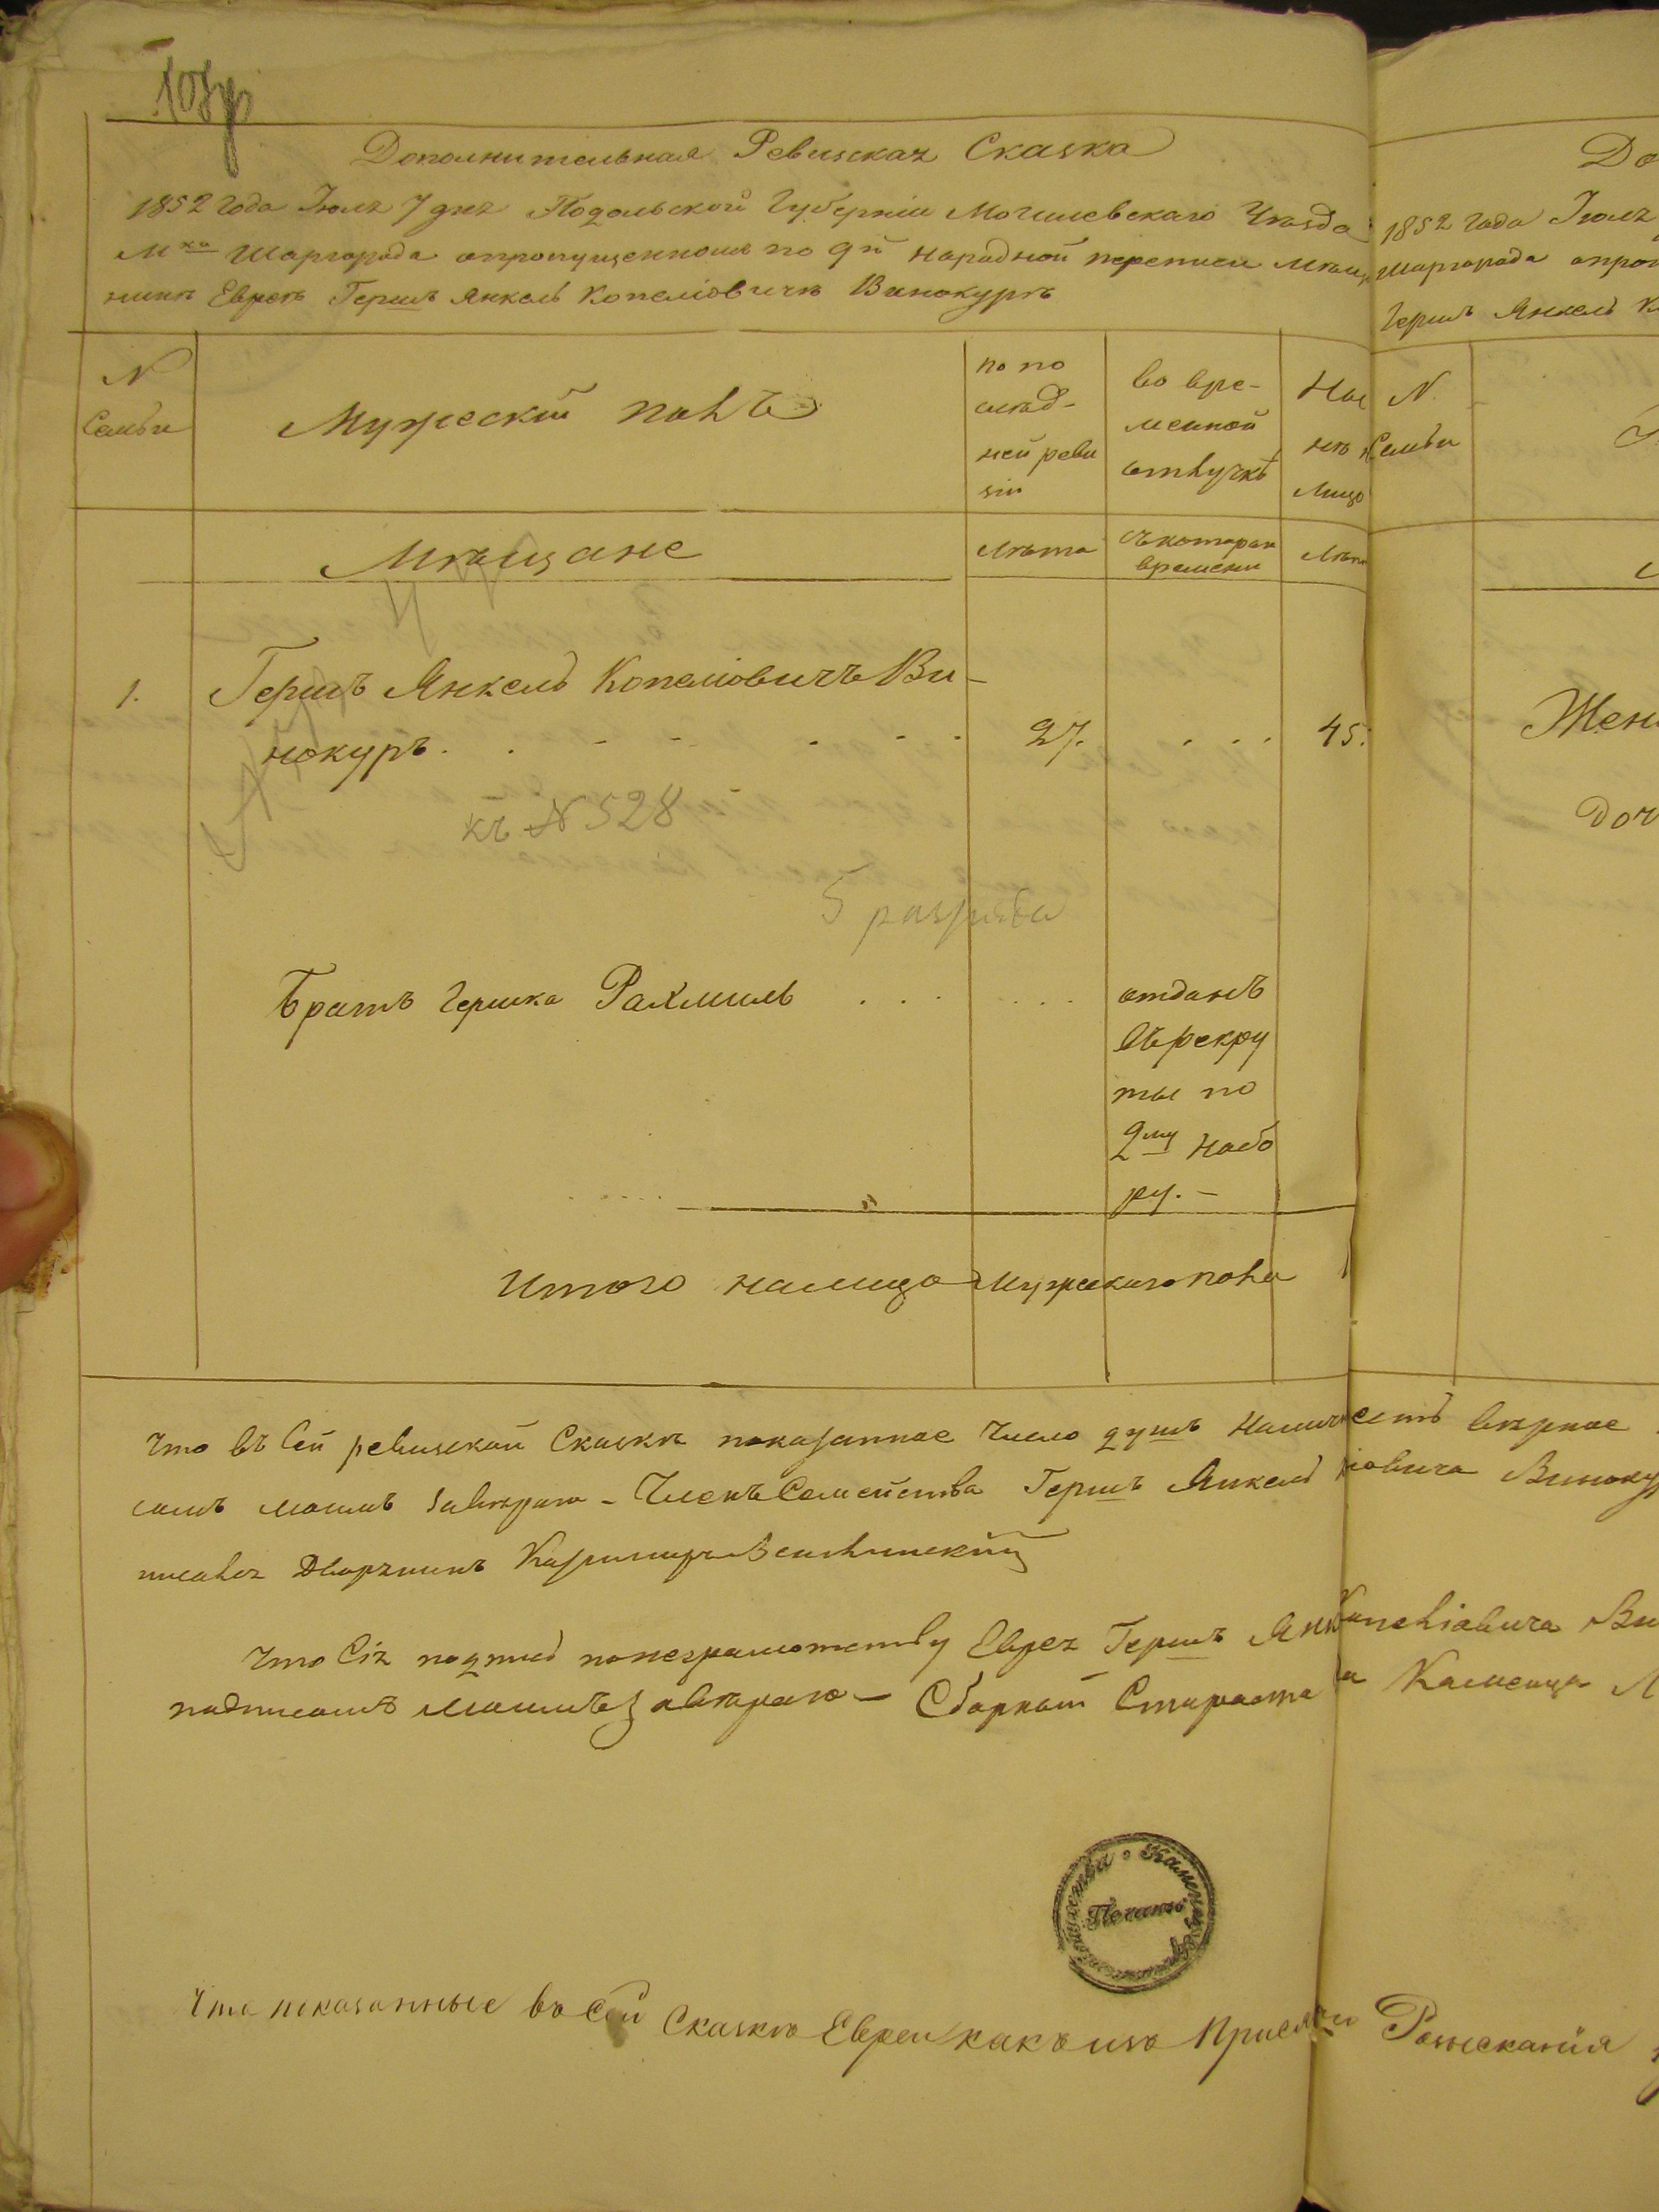 Дополнительная Ревизская Сказка
1852 года Іюля 7 дня Подольской Губерніи Могилевскаго Уѣзда
М-ка Шаргорода опропущенномъ по 9й народной переписи мѣщ
нинѣ Евреѣ Гершъ Янкель Копеліовичѣ Винокурѣ
N Семьи
Мужескій полъ
по по слѣд- ней реви зіи
во вре- менной отлучкѣ
На лицо
Мѣщане
Лѣта
съ котораго времени
Лѣта
1. Гершъ Янкель Копеліовичъ Ви-
нокуръ. 27. 45.
къ N 528
5 разряда
Братъ Гершка Рахмиль
отданъ
въ рекру
ты по
2му набо
ру. –
Итого налицо Мужескаго пола
Что въ сей ревизской Сказкѣ показанное число душъ Налич есть вѣрное
Членъ Семейства Гершъ Янкель ліовича Виноку
Дворянинъ Казимиръ
Что Сія подпись понеграмотству Еврея Гершъ Янк Копеліовича Ви
подписалъ Сборный Староста Каменца
Печать
Что показанные въ сей Сказкѣ Евреи какъ изъ Присяги Розысканія
До
1852 года Іюля
Шаргорода опроп
Гершъ Янкель К
N.
Семьи
Жен
Доч